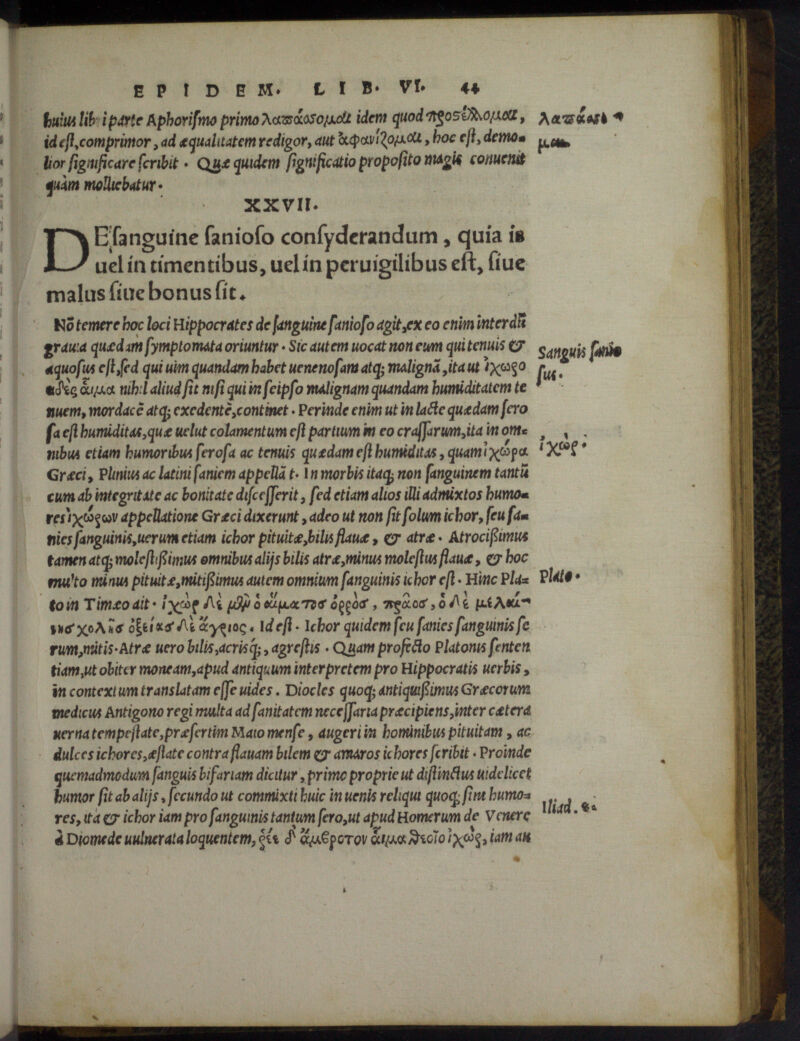 EPIDEM. LIB. VI. 44
huius lib iparte Aphorismo primo λαπάσσομαι idem quod προστέλλομαι,
id est, comprimor, ad æqualitatem redigor, aut ἀφανίζομαι, hoc est, demo-
lior significare scribit. Quæ quidem significatio proposito magis conuenit
quàm molliebatur.
λαπάσσο-
μαι.
XXVII.
DE sanguine sanioso consyderandum, quia is
uel in timentibus, uel in peruigilibus est, siue
malus siue bonus sit.
Nō temere hoc loci Hippocrates de sanguine sanioso agit, ex eo enim interdū
grauia quædam symptomata oriuntur. Sic autem uocat non eum qui tenuis &
aquosus est, sed qui uim quandam habet uenenosam atq; malignā, ita ut ἰχωρο
ειδὲς αἷμα nihil aliud sit nisi qui in seipso malignam quandam humiditatem te
nuem, mordacē atq; exedentē, continet. Perinde enim ut in lacte quædam sero
sa est humiditas, quæ uelut colamentum est partium in eo crassarum, ita in om-
nibus etiam humoribus serosa ac tenuis quædam est humiditas, quam ἰχῶρα
Græci, Plinius ac latini saniem appellāt. In morbis itaq; non sanguinem tantū
cum ab integritate ac bonitate discesserit, sed etiam alios illi admixtos humo-
res ἰχώρων appellatione Græci dixerunt, adeo ut non sit solum ichor, seu sa-
nies sanguinis, uerum etiam ichor pituitæ, bilis flauæ, & atræ. Atrocißimus
tamen atq; molestißimus omnibus alijs bilis atræ, minus molestus flauæ, & hoc
multo minus pituitæ, mitißimus autem omnium sanguinis ichor est. Hinc Pla-
to in Timæo ait. ἰχὼρ δὲ μὲν ὁ αἵματος ὀρρὸς, πρᾶος, ὁ δὲ μελαί-
νης χολῆς ὀξείας δὲ ἄγριος. Id est. Ichor quidem seu sanies sanguinis se
rum, mitis. Atræ uero bilis, acrisq;, agrestis. Quam profecto Platonis senten
tiam, ut obiter moneam, apud antiquum interpretem pro Hippocratis uerbis,
in contextum translatam esse uides. Diocles quoq; antiquißimus Græcorum
medicus Antigono regi multa ad sanitatem necessaria præcipiens, inter cætera
uerna tempestate, præsertim Maio mense, augeri in hominibus pituitam, ac
dulces ichores, æstate contra flauam bilem & amaros ichores scribit. Proinde
quemadmodum sanguis bifariam dicitur, primo proprie ut distinctus uidelicet
humor sit ab alijs, secundo ut commixti huic in uenis reliqui quoq; sint humo-
res, ita & ichor iam pro sanguinis tantum sero, ut apud Homerum de Venere
à Diomede uulnerata loquentem, ῥέε δ' ἄμβροτον αἷμα θεοῖο ἰχὼρ, iam au
Sanguis sanio
sus.
ἰχώρ.
Plato.
Iliad. ε.